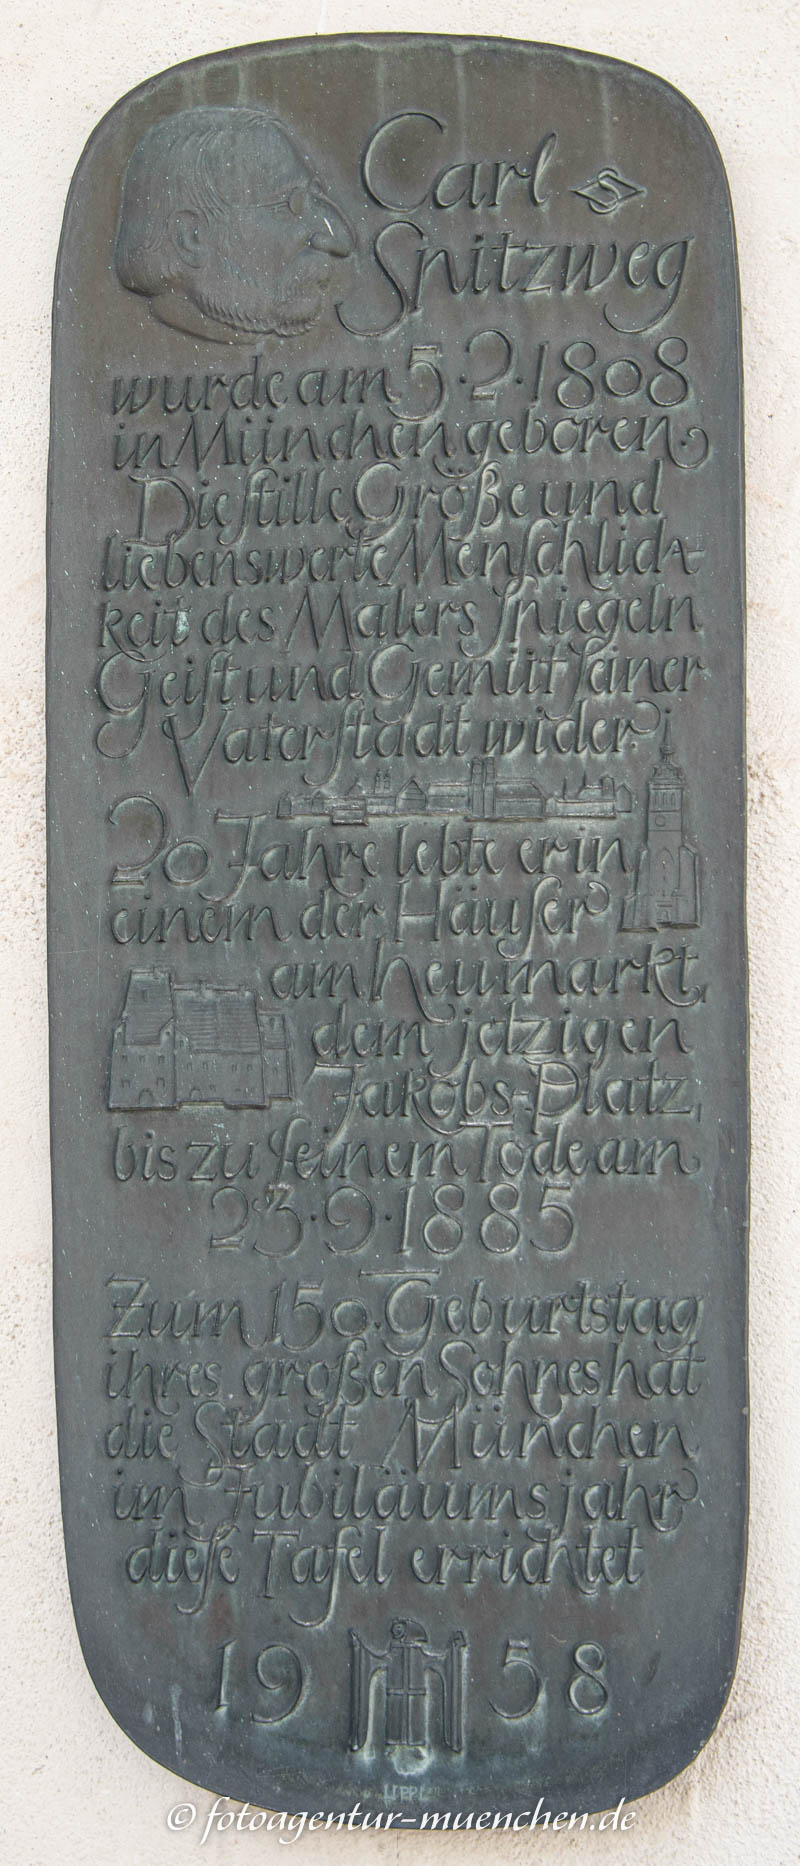 Carl
Spitzweg
wurde am 5.2.1808
in München geboren.
Die stille Größe und
liebenswerte Menschlich-
keit des Malers spiegeln
Geist und Gemüt seiner
Vaterstadt wider.
20 Jahre lebte er in
einem der Häuser
am Heumarkt,
dem jetzigen
Jakobs-Platz,
bis zu seinem Tode am
23.9.1885
Zum 150. Geburtstag
ihres großen Sohnes hat
die Stadt München
im Jubiläumsjahr
diese Tafel errichtet
1958
LIPPL
© fotoagentur-muenchen.de